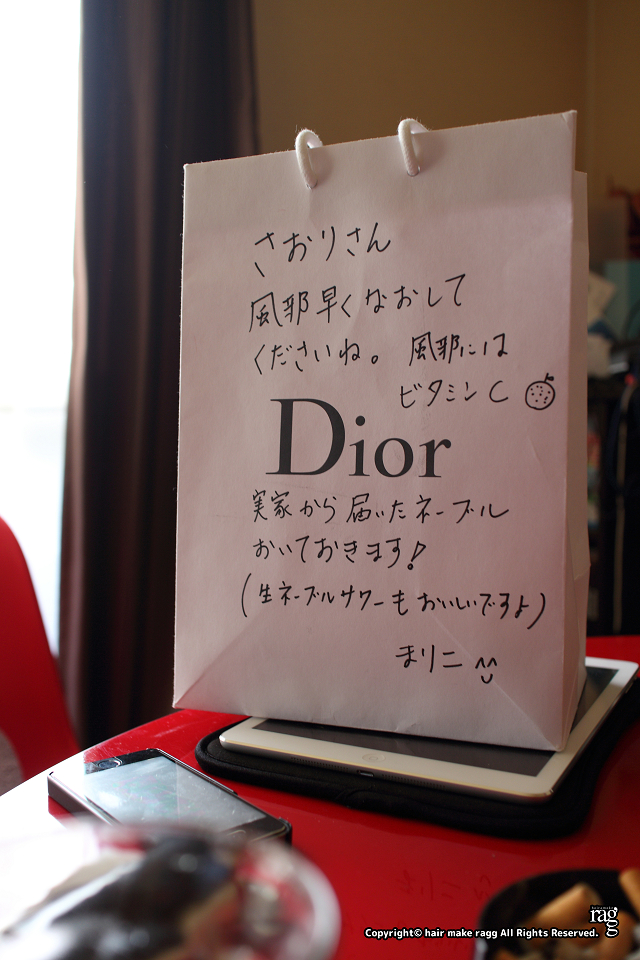 さおりさん
風邪早くなおして
くださいね。 風邪には
ビタミンC
Dior
実家から届いたネーブル
おいておきます!
(生ネーブルサワーもおいしいですよ)
まリコ
hair&make
ragg
Copyright© hair make ragg All Rights Reserved.